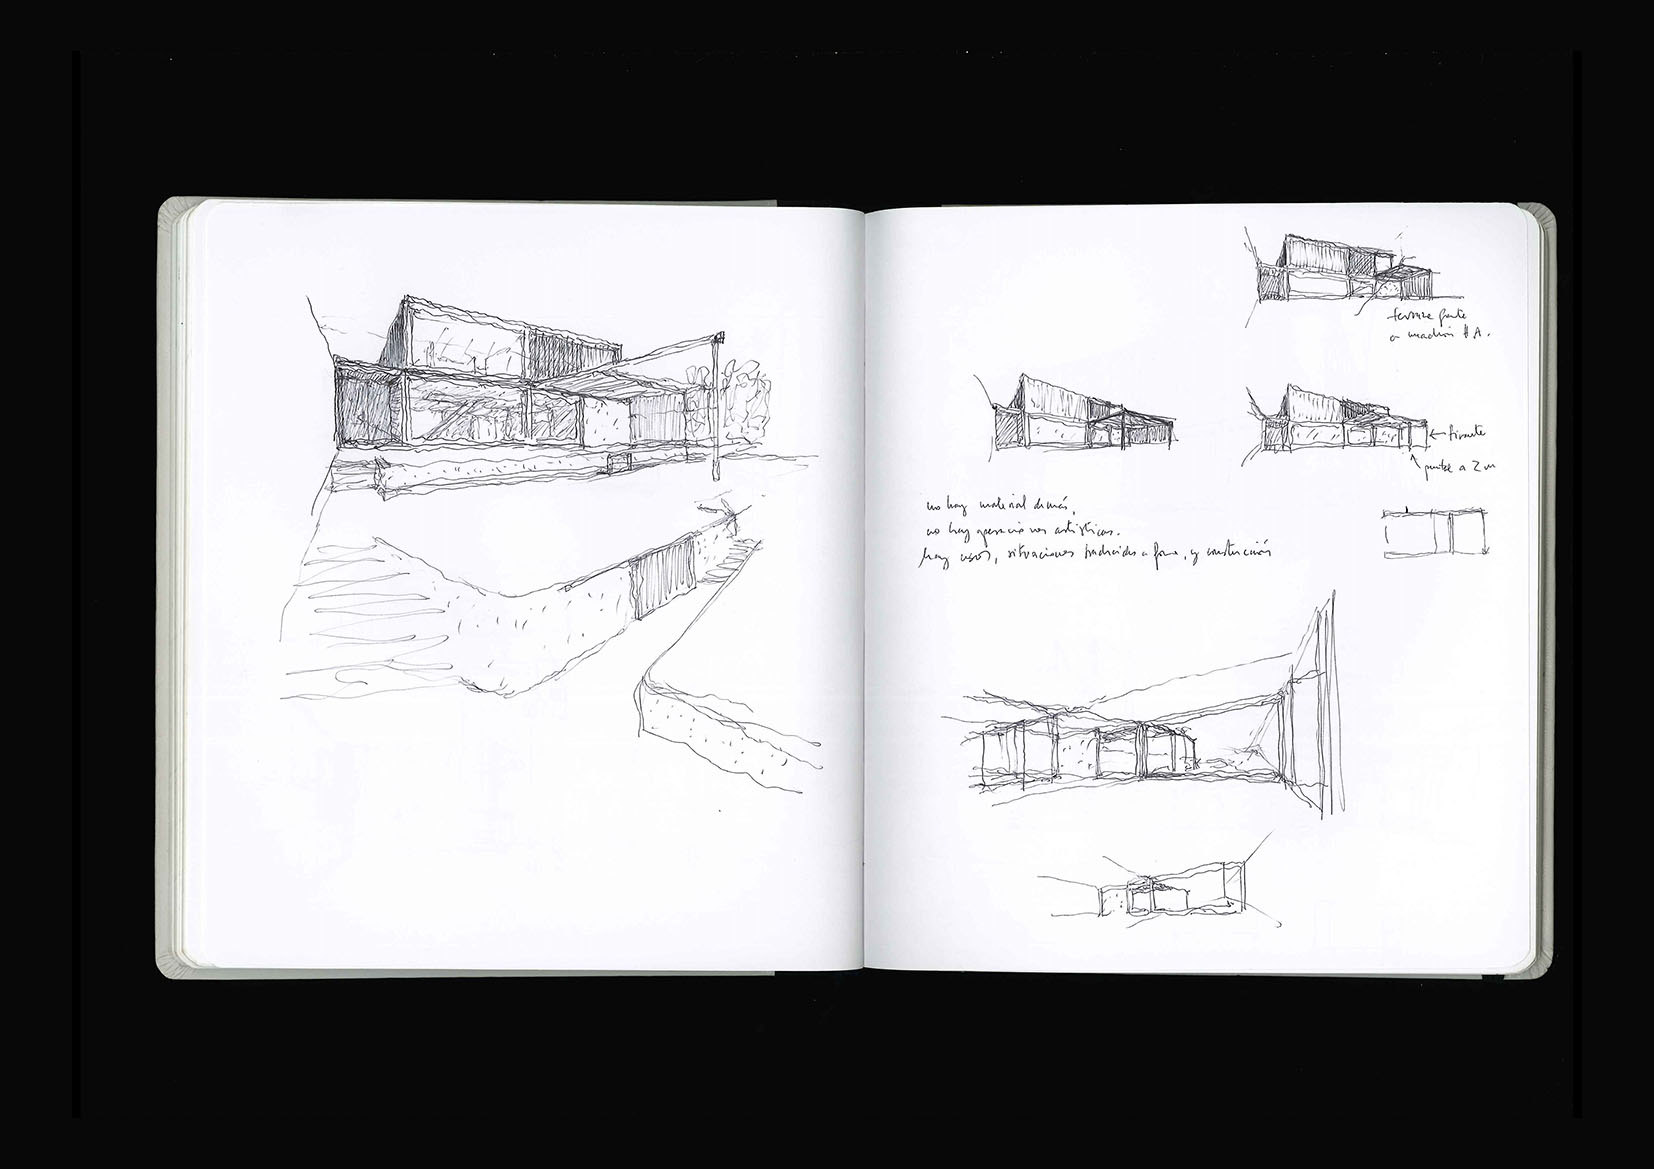 terraza frente
a machón H A.
← tirante
puntal a 2 m
no hay material demás,
no hay operaciones artísticas.
hay usos, situaciones traducidas a forma, y construcción